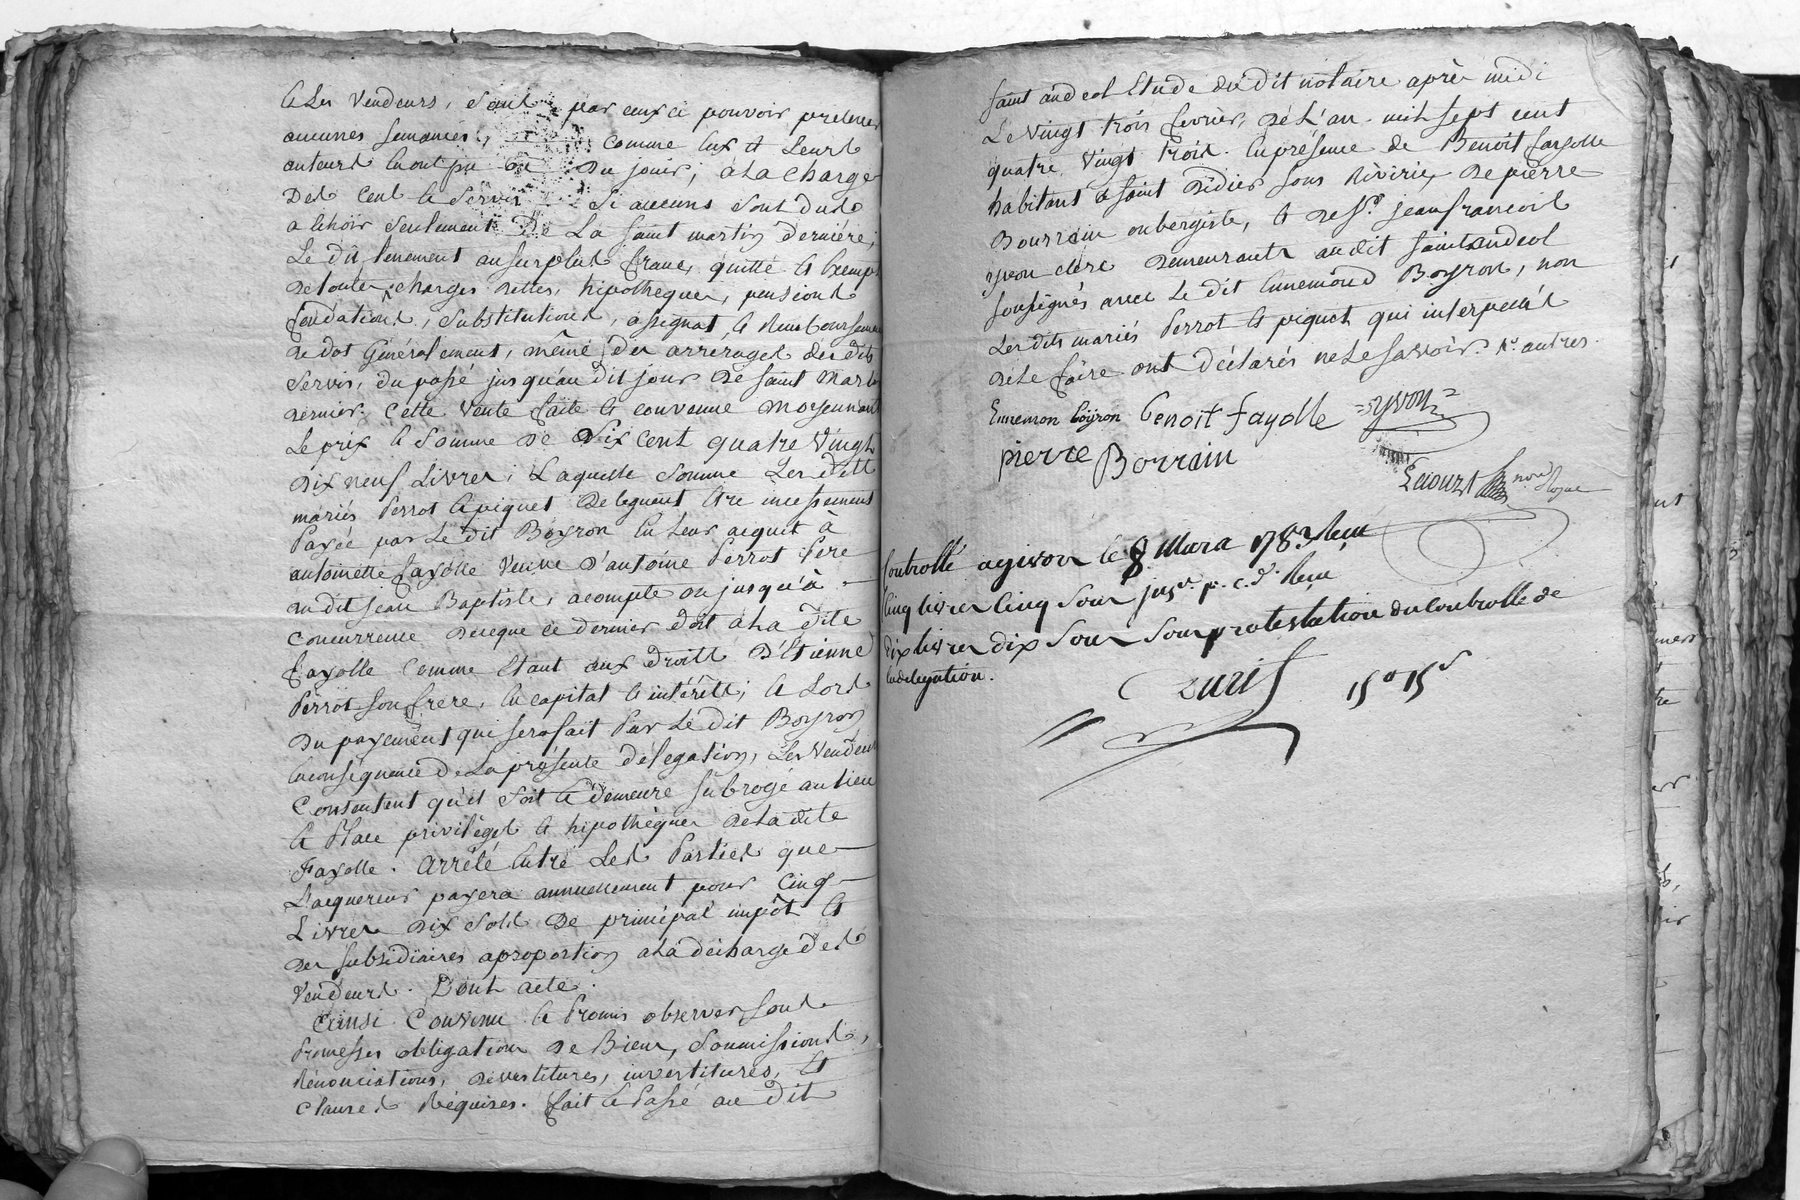 & les Vendeurs, sans par eux ce pouvoir prelever
aucunes semances, comme eux et Leurs
auteurs en ont pu ou du jouir, a La charge
Des cens & servis si aucuns sont dus
a échoir seulement De La saint martin derniére,
Le dit tenement au surplus franc, quitte & exempt
de toutes charges dettes, hipotheques, pensions
fondations, substitutions, assignat, & Remboursement
de dot Généralement, même des arrérages des dits
servis, du passé jusqu'au dit jour de saint Martin
dernier. Cette Vente faite & convenue moyennant
Le prix & somme de Six cent quatre Vingt
dix neuf Livres; Laquelle somme Les dits
mariés Perrot & piquet déleguent être incessament
Payée par Le dit Boyron en Leur acquit à
antoinette fayolle Veuve d'antoine Perrot Pere
du dit jean Baptiste, acompte ou jusqu'à
concurrence de ce que ce dernier doit à La dite
fayolle comme étant aux droits d'Etienne
Perrot son frere, en capital & intérêts; & Lors
du payement qui sera fait Par Le dit Boyron
en conséquence de La présente délegation, Les Vendeurs
Consentent qu'il soit & demeure subrogé au lieu
& Place priviléges & hipothèques de La dite
Fayolle. Arrêté Entre Les Parties que
L'acquereur payera annuellement pour cinq
Livres dix sols de principal impôt &
des subsidiaires a proportion a La décharge des
Vendeurs. Dont acte.
Ainsi Convenu & Promis observer sous
Promesses obligations de Biens, soumissions,
Rénonciations, dévestitures, investitures, &
clauses Réquises. fait & Passé au dit
saint andeol Etude du dit notaire après midi
Le vingt trois fevrier, de L'an mil sept cent
quatre vingt trois. en présence de Benoit fayolle
habitant à saint didier sous Riviriè, de pierre
Bourrain aubergiste, & de Sr. jean francois
yvon clerc demeurants au dit saint andeol
soussignés avec Le dit Ennemond Boyron, non
Les dits mariés Perrot & piquet qui interpellés
de Le faire ont déclarés ne Le savoir. Rs. autres.
Ennemon boyron Benoit fayolle =yvon=
pierre Borrain
Controllé a givors le 8 Mars 1783 Reçu
Cinq livres Cinq Sous Reçu
Dix livres dix Sous Sous protestation du Controlle de
la delegation.
15# 15s